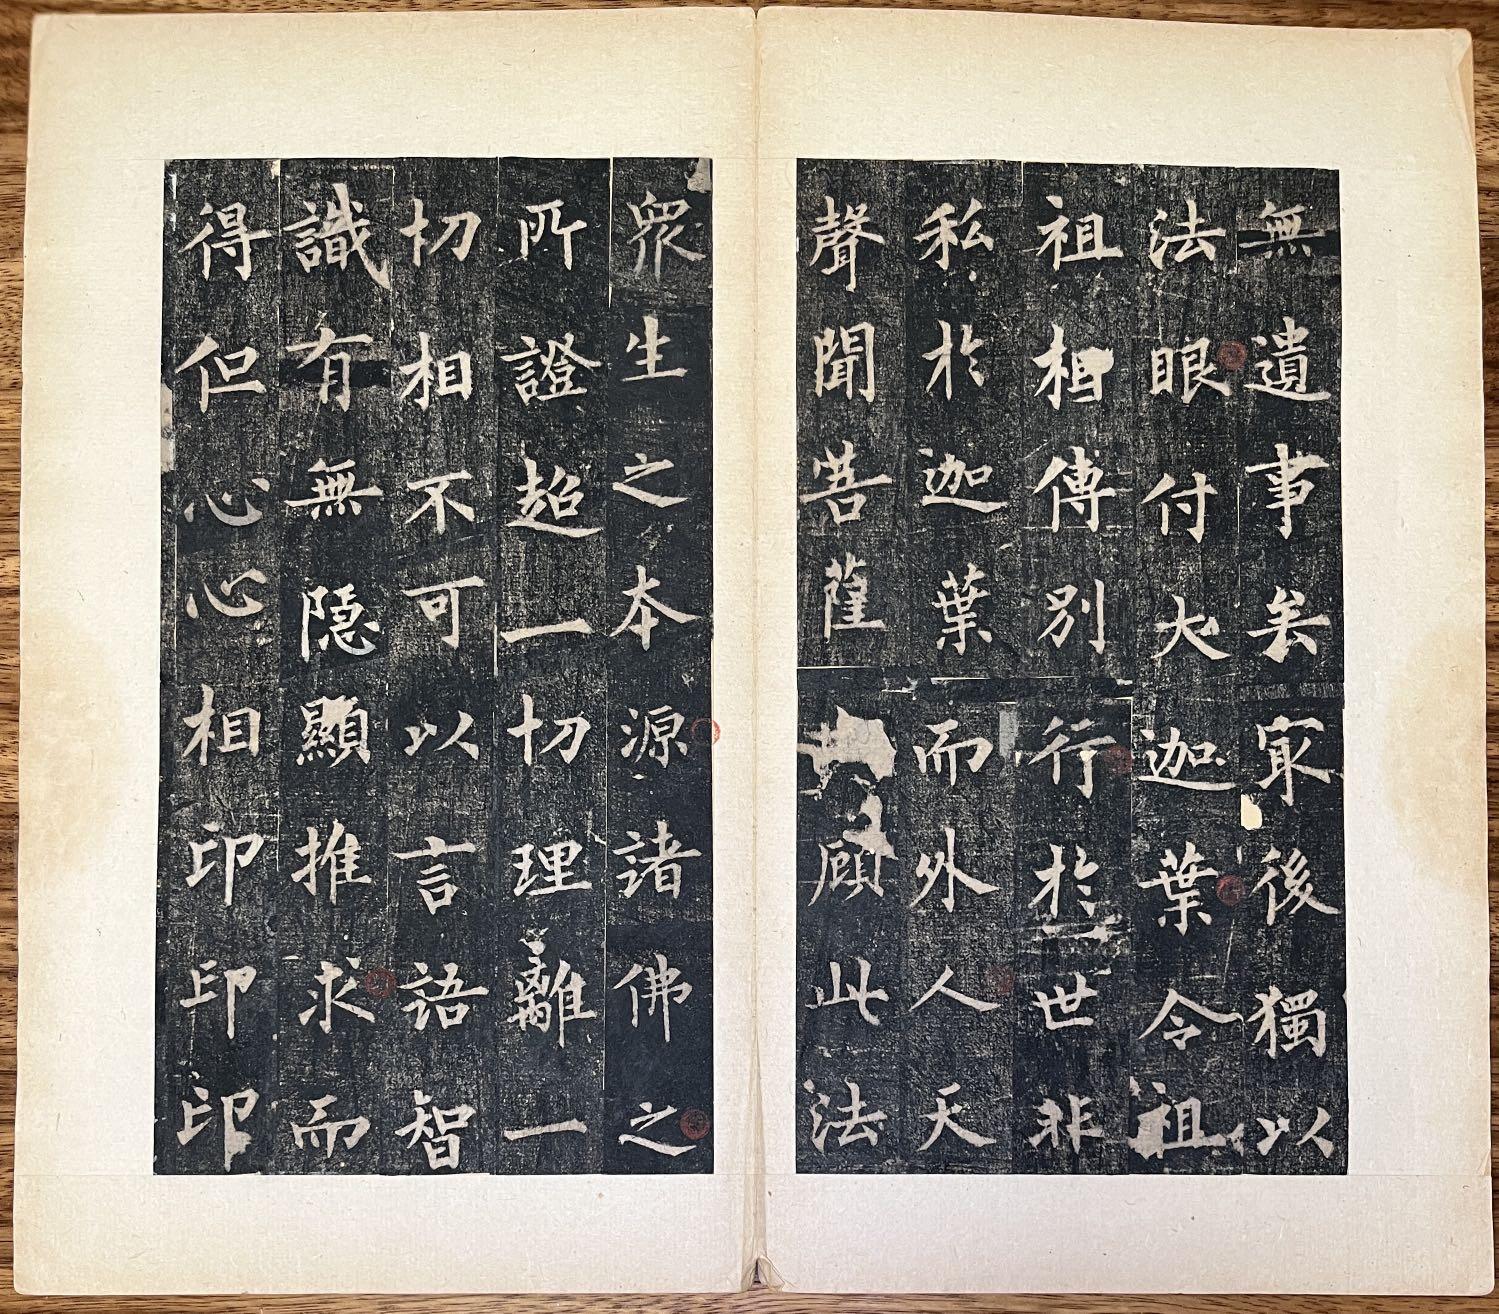 無遺事矣㝡後獨以
法眼付大迦葉令祖
祖相傳別行於世非
私於迦葉而外人天
聲聞菩薩顧此法
眾生之本源諸佛之
所證超一切理離一
切相不可以言語智
識有無隱顯推求而
得但心心相印印印